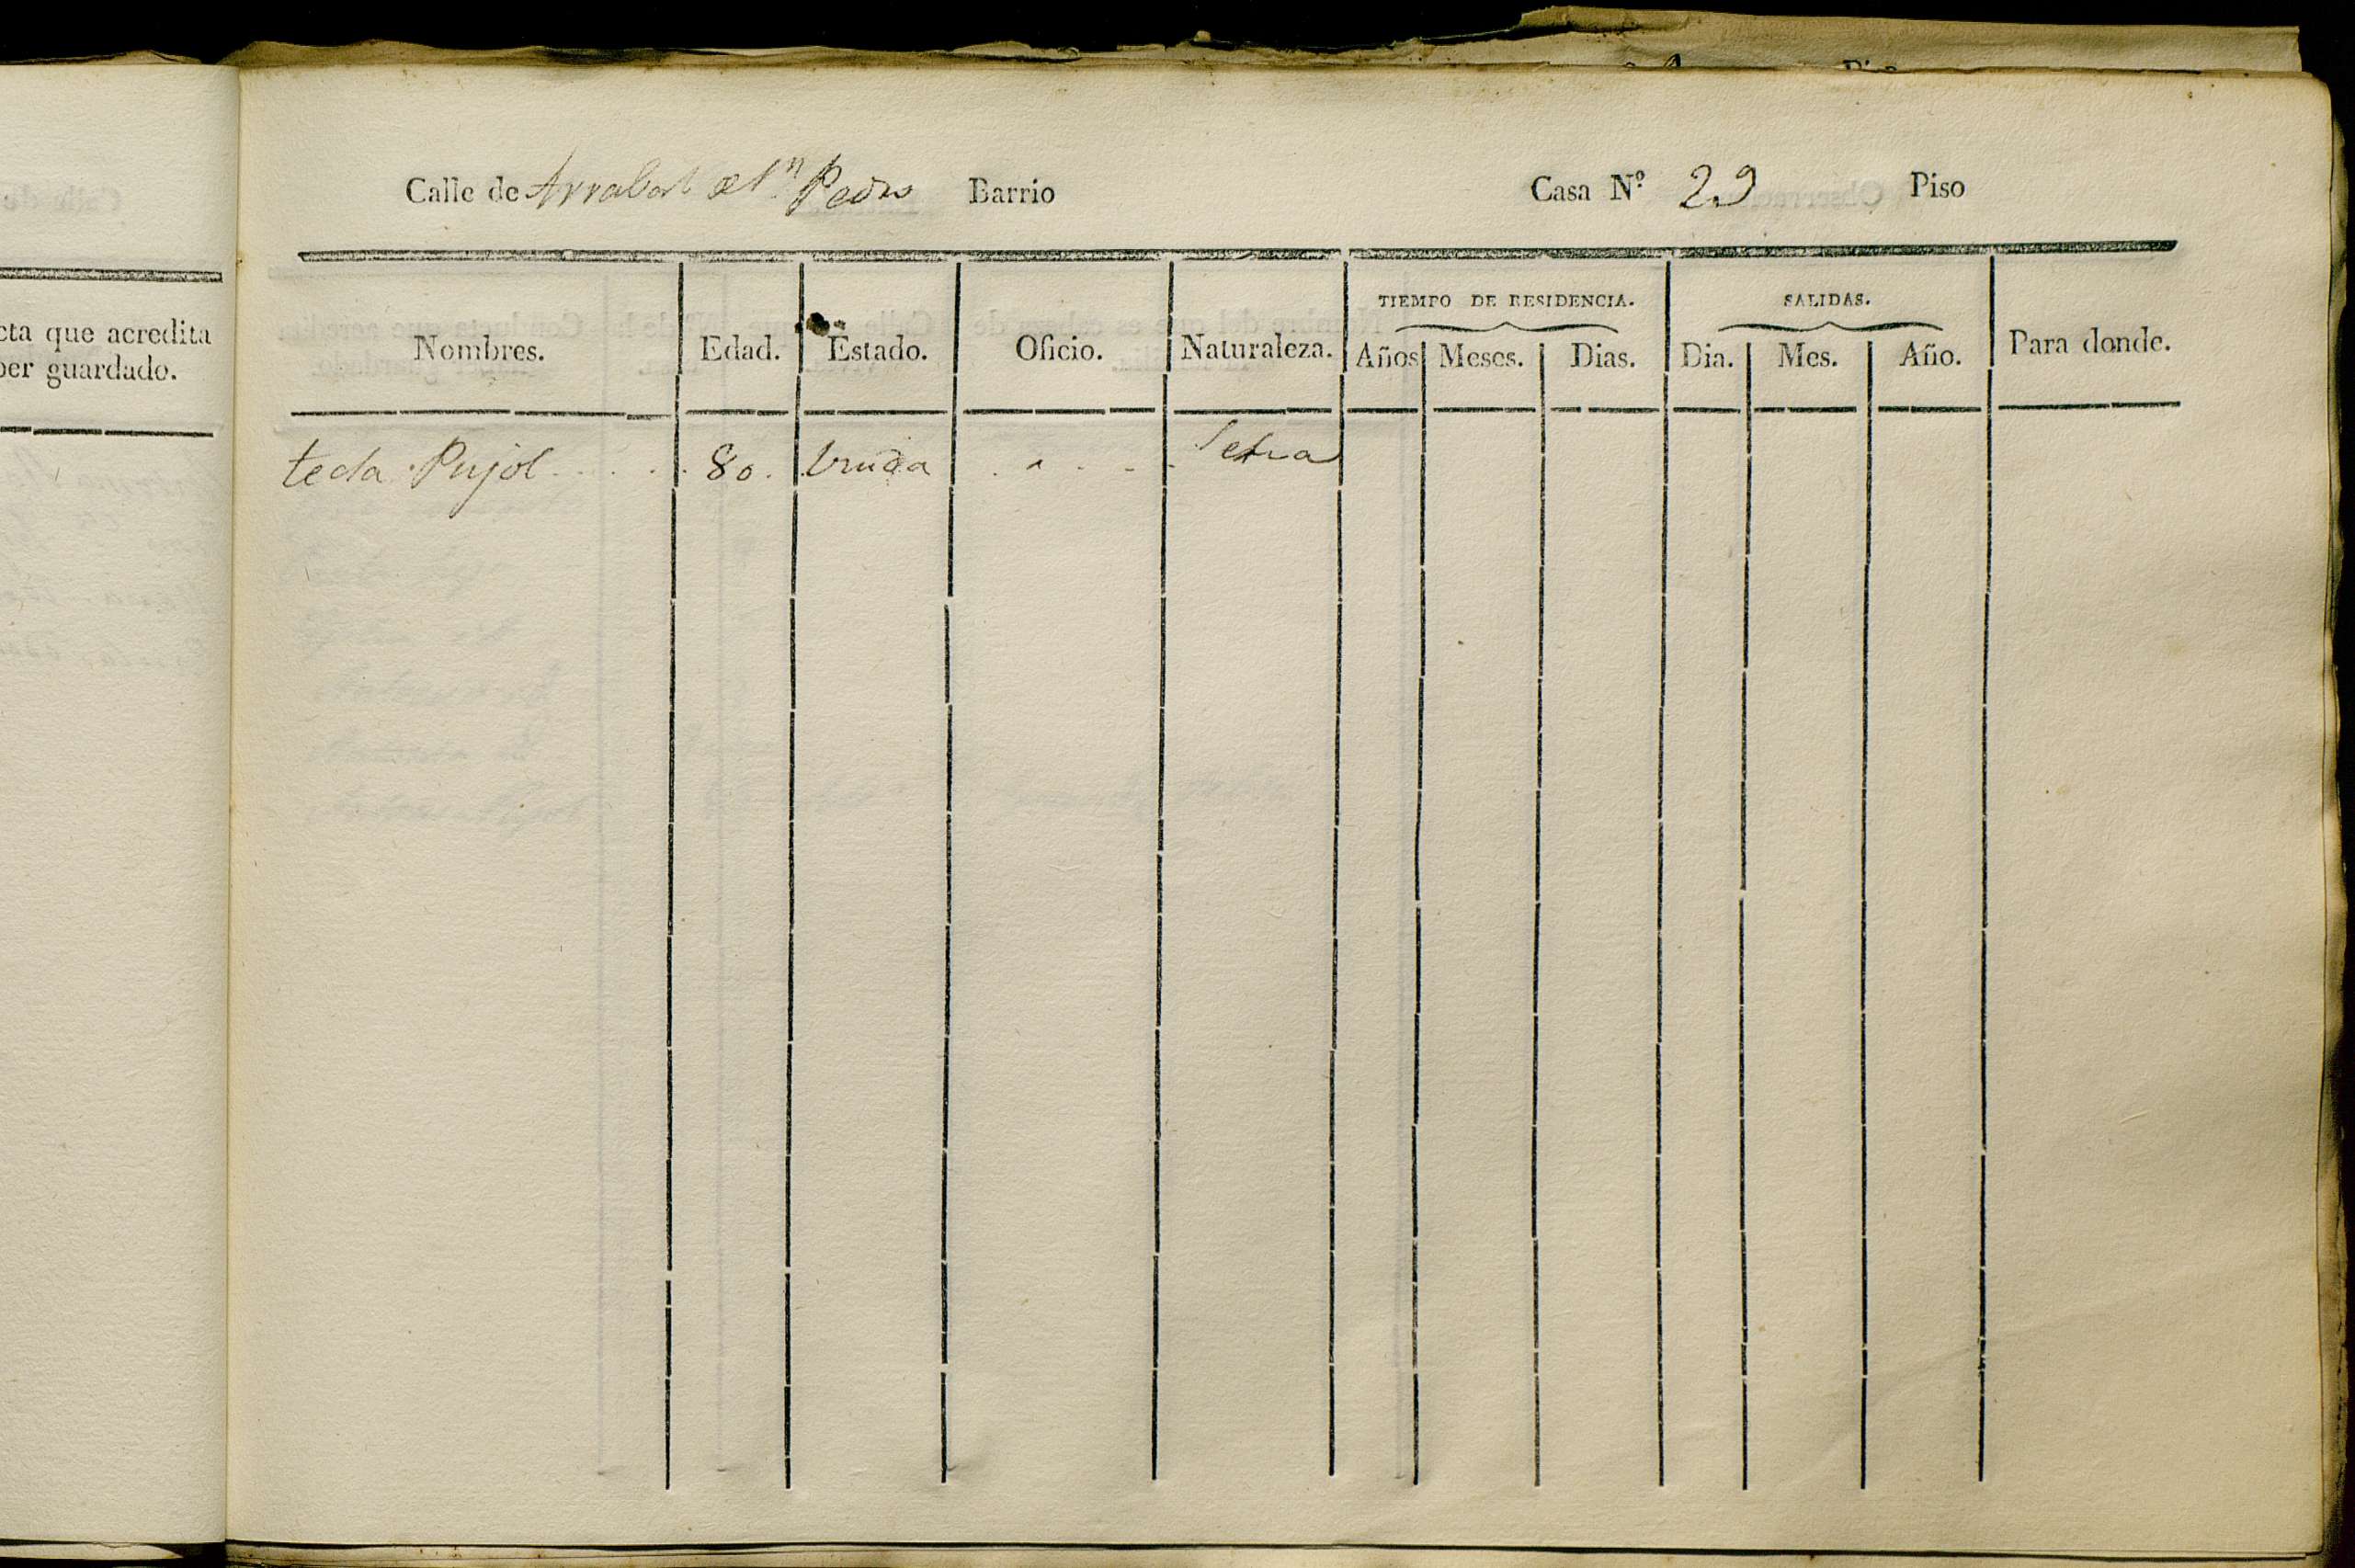 Calle de Arrabal Sn. Pedro Barrio Casa Nº 29 Piso
cta que acredita
ber guardado.
Nombres. Edad. Estado. Oficio. Naturaleza. TIEMPO DE RESIDENCIA. Años Meses. Dias. SALIDAS. Dia. Mes. Año. Para donde.
tecla Pujol 80. Viuda